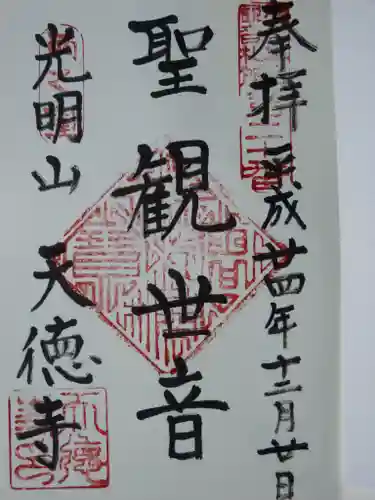 奉拝 平成廿四年十二月廿日
聖観世音
光明山 天徳寺